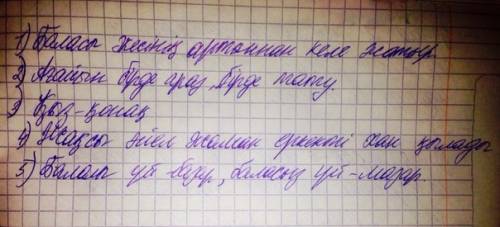 1) Баласы әкесінің артыннан келе жатыр.
2) Ағайын бірде араз, бірде тату
3 Қыз-қонақ
4) Жақсы әйел жаман еркекті хан қылады
5) Балалы үй-базар, баласыз үй-мазар.